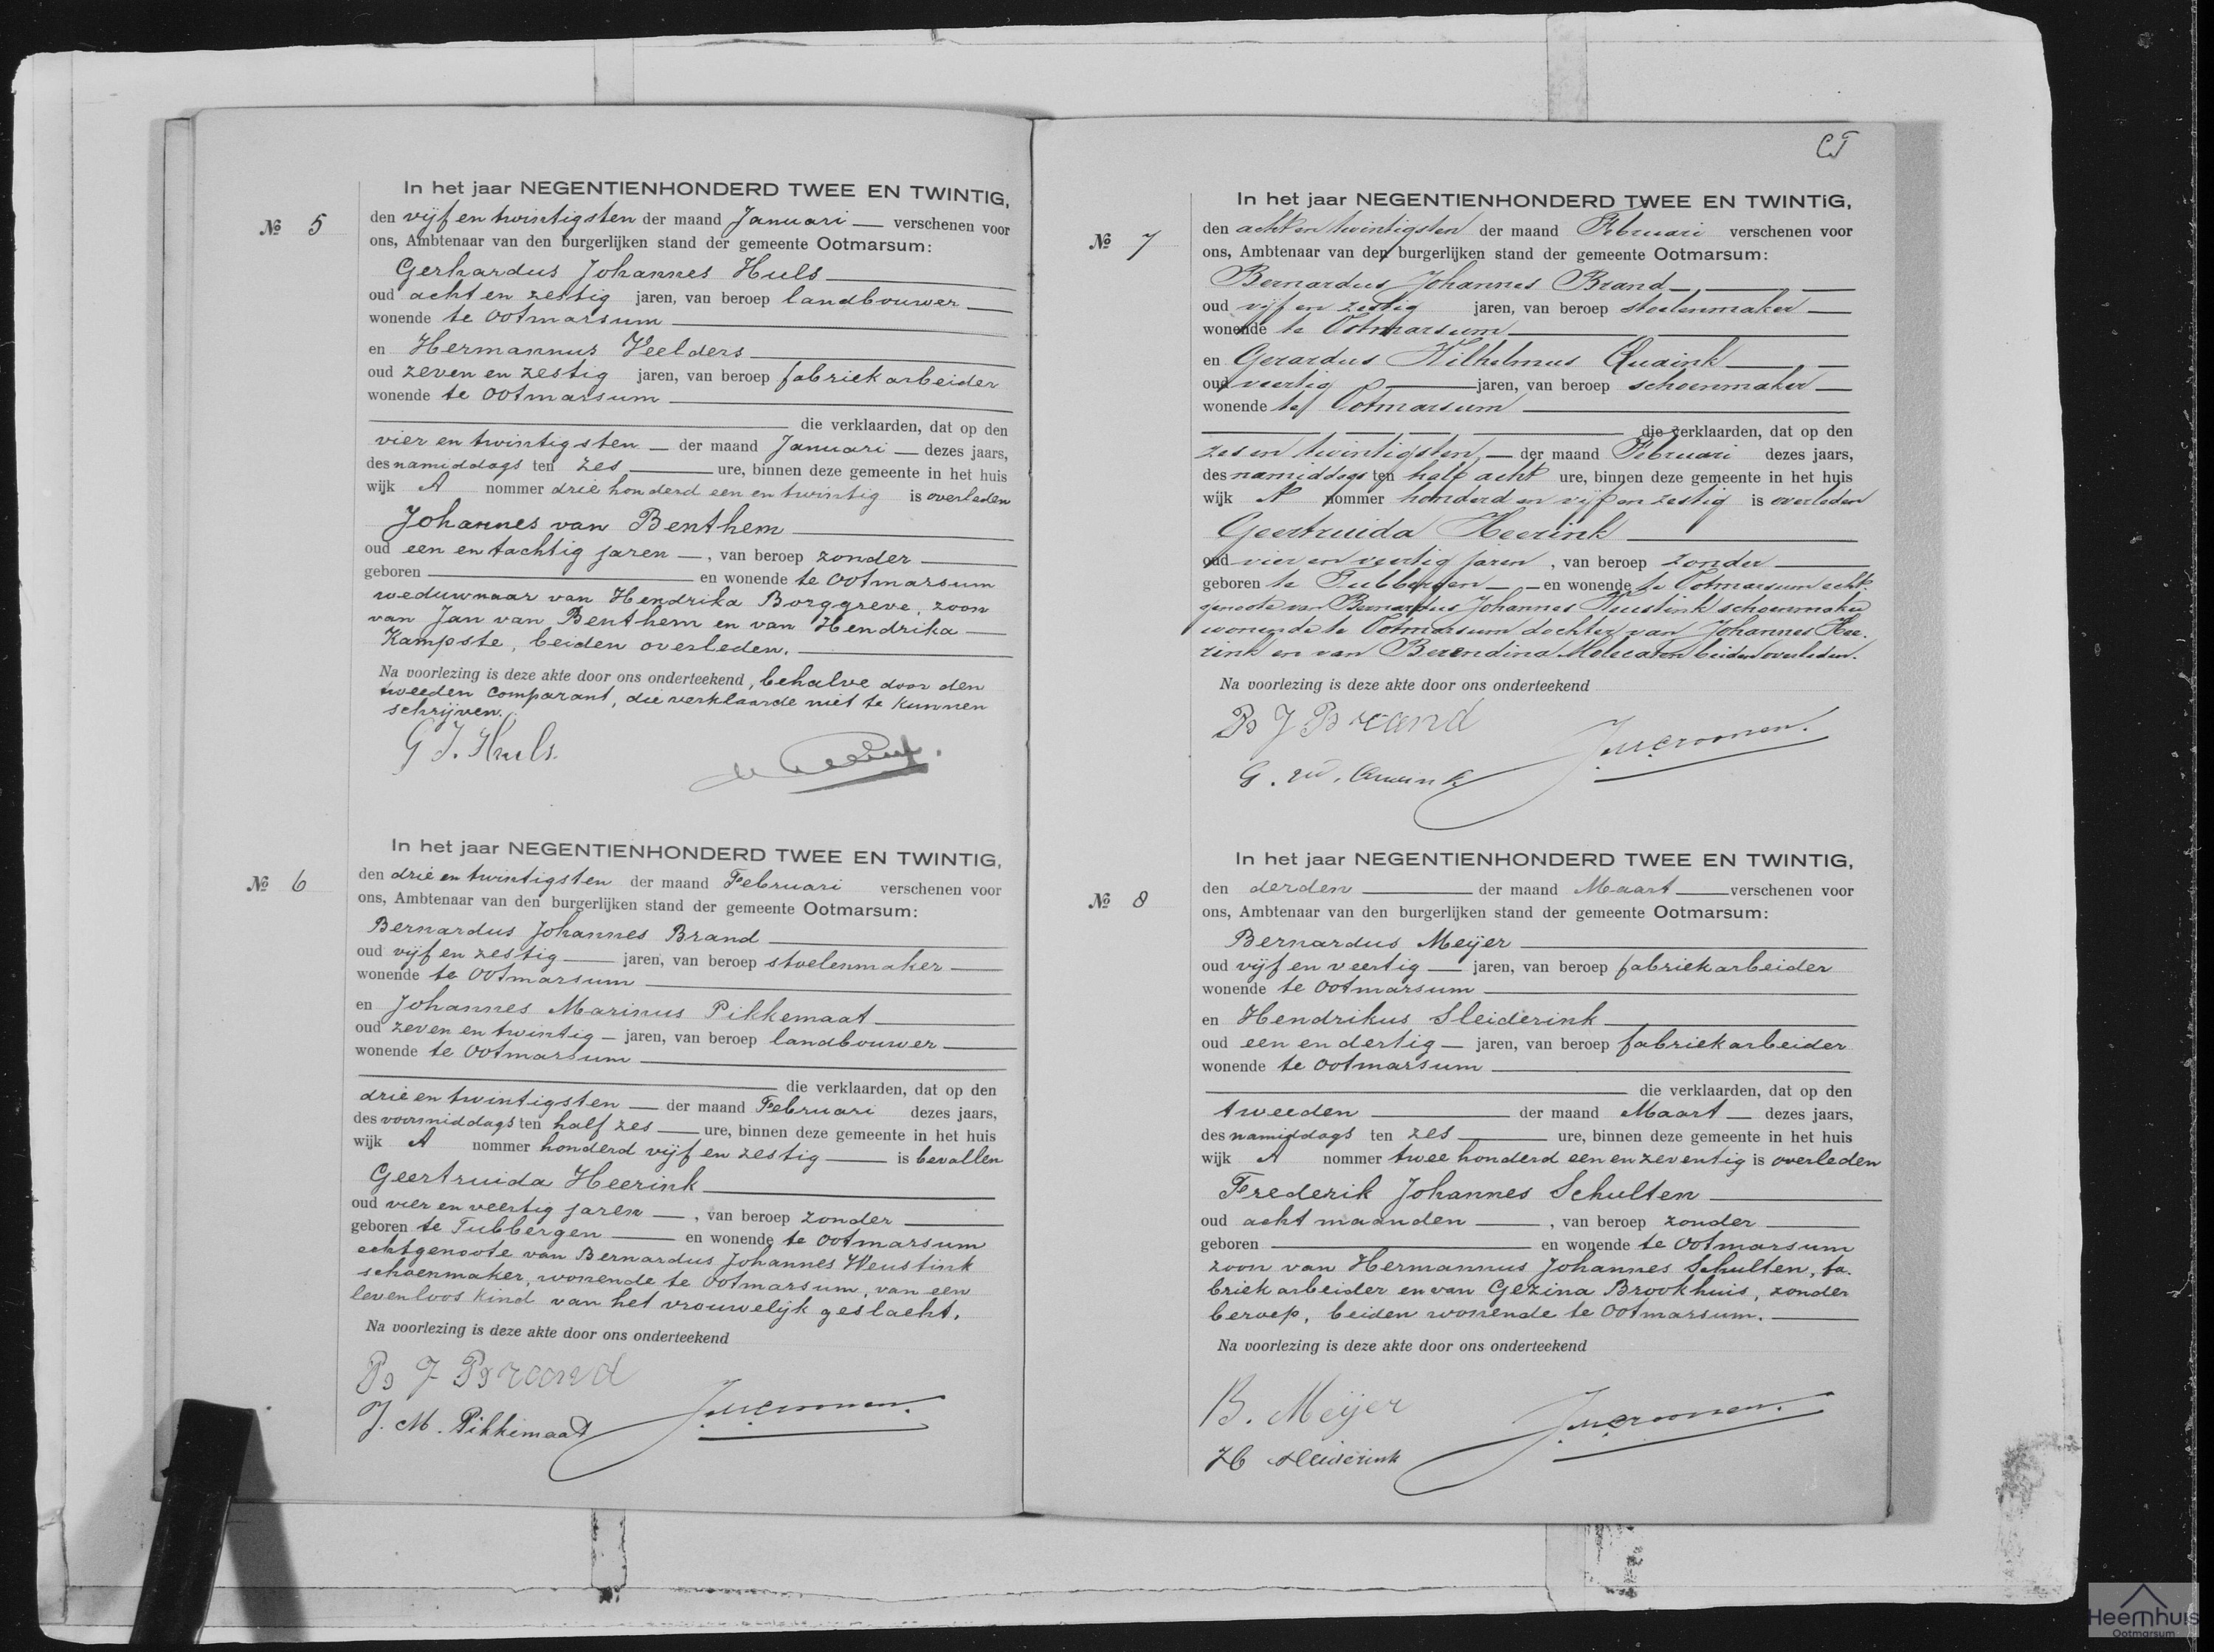 In het jaar NEGENTIENHONDERD TWEE EN TWINTIG,
No 5 den vijf en twintigsten der maand Januari — verschenen voor
ons, Ambtenaar van den burgerlijken stand der gemeente Ootmarsum:
Gerhardus Johannes Huls
oud acht en zestig jaren, van beroep landbouwer
wonende te Ootmarsum
en Hermannus Veelders
oud zeven en zestig jaren, van beroep fabriekarbeider
wonende te Ootmarsum
die verklaarden, dat op den
vier en twintigsten — der maand Januari — dezes jaars,
des namiddags ten zes ure, binnen deze gemeente in het huis
wijk A nommer drie honderd een en twintig is overleden
Johannes van Benthem
oud een en tachtig jaren —, van beroep zonder
geboren en wonende te Ootmarsum
weduwnaar van Hendrika Borggreve, zoon
van Jan van Benthem en van Hendrika
Kampste, beiden overleden.
Na voorlezing is deze akte door ons onderteekend, behalve door den
tweeden comparant, die verklaarde niet te kunnen
schrijven.
G J. Huls.
In het jaar NEGENTIENHONDERD TWEE EN TWINTIG,
No 6 den drie en twintigsten der maand Februari verschenen voor
ons, Ambtenaar van den burgerlijken stand der gemeente Ootmarsum:
Bernardus Johannes Brand
oud vijf en zestig — jaren, van beroep stoelenmaker
wonende te Ootmarsum
en Johannes Marinus Pikkemaat
oud zeven en twintig — jaren, van beroep landbouwer
wonende te Ootmarsum
die verklaarden, dat op den
drie en twintigsten — der maand Februari dezes jaars,
des voormiddags ten half zes — ure, binnen deze gemeente in het huis
wijk A nommer honderd vijf en zestig — is bevallen
Geertruida Heerink
oud vier en veertig jaren —, van beroep zonder
geboren te Tubbergen — en wonende te Ootmarsum
echtgenoote van Bernardus Johannes Weustink
schoenmaker, wonende te Ootmarsum, van een
levenloos kind van het vrouwelijk geslacht.
Na voorlezing is deze akte door ons onderteekend
B J Brand
J. M. Pikkemaat
In het jaar NEGENTIENHONDERD TWEE EN TWINTIG,
No 7 den acht en twintigsten der maand Februari verschenen voor
ons, Ambtenaar van den burgerlijken stand der gemeente Ootmarsum:
Bernardus Johannes Brand
oud vijf en zestig jaren, van beroep stoelenmaker
wonende te Ootmarsum
en Gerardus Wilhelmus Quaink
oud veertig — jaren, van beroep schoenmaker
wonende te Ootmarsum
die verklaarden, dat op den
zes en twintigsten — der maand Februari dezes jaars,
des namiddags ten half acht ure, binnen deze gemeente in het huis
wijk A nommer honderd en vijf en zestig is overleden
Geertruida Heerink
oud vier en veertig jaren, van beroep zonder
geboren te Tubbergen — en wonende te Ootmarsum echt-
genoote van Bernardus Johannes Weustink schoenmaker
wonende te Ootmarsum dochter van Johannes Hee-
rink en van Berendina Molecaten beiden overleden.
Na voorlezing is deze akte door ons onderteekend
B J Brand
In het jaar NEGENTIENHONDERD TWEE EN TWINTIG,
No 8 den derden der maand Maart — verschenen voor
ons, Ambtenaar van den burgerlijken stand der gemeente Ootmarsum:
Bernardus Meijer
oud vijf en veertig — jaren, van beroep fabriekarbeider
wonende te Ootmarsum
en Hendrikus Sleiderink
oud een en dertig — jaren, van beroep fabriekarbeider
wonende te Ootmarsum
die verklaarden, dat op den
tweeden der maand Maart — dezes jaars,
des namiddags ten zes ure, binnen deze gemeente in het huis
wijk A nommer twee honderd een en zeventig is overleden
Frederik Johannes Schulten
oud acht maanden —, van beroep zonder
geboren en wonende te Ootmarsum
zoon van Hermannus Johannes Schulten, fa-
briekarbeider en van Gezina Brookhuis, zonder
beroep, beiden wonende te Ootmarsum.
Na voorlezing is deze akte door ons onderteekend
B. Meijer
H Sleiderink
Heemhuis
Ootmarsum